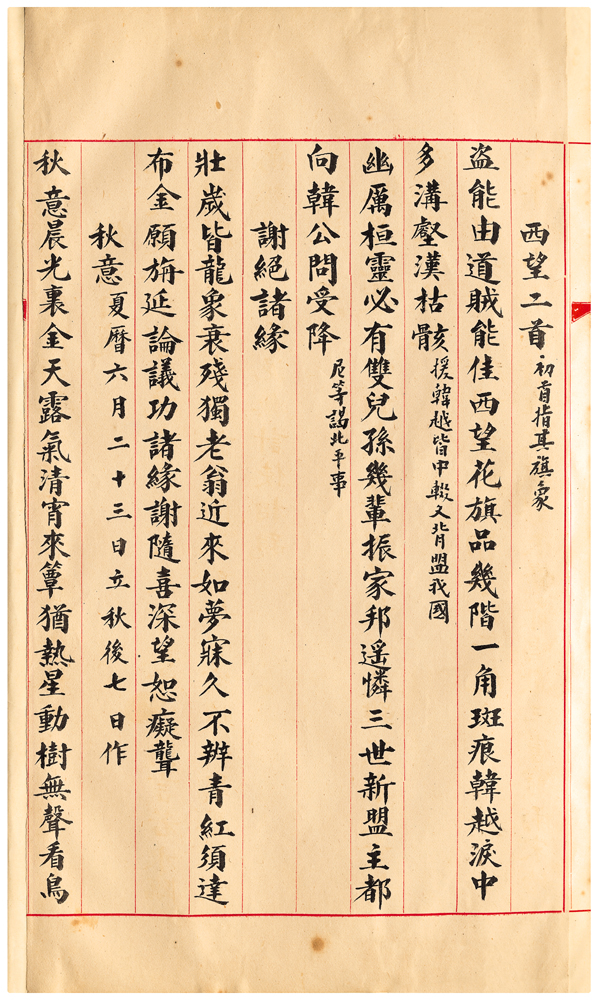 西望二首初首指其旗象
盗能由道賊能佳西望花旗品幾階一角斑痕韓越淚中
多溝壑漢枯骸援韓越皆中輟又背盟我國
幽厲桓靈必有雙兒孫幾輩振家邦遥憐三世新盟主都
向韓公問受降尼等謁北平事
謝絕諸緣
壯歲皆龍象衰殘獨老翁近來如夢寐久不辨青紅須達
布金願旃延論議功諸緣謝隨喜深望恕癡聾
秋意夏曆六月二十三日立秋後七日作
秋意晨光裏金天露氣清宵來簟猶熱星動樹無聲看鳥